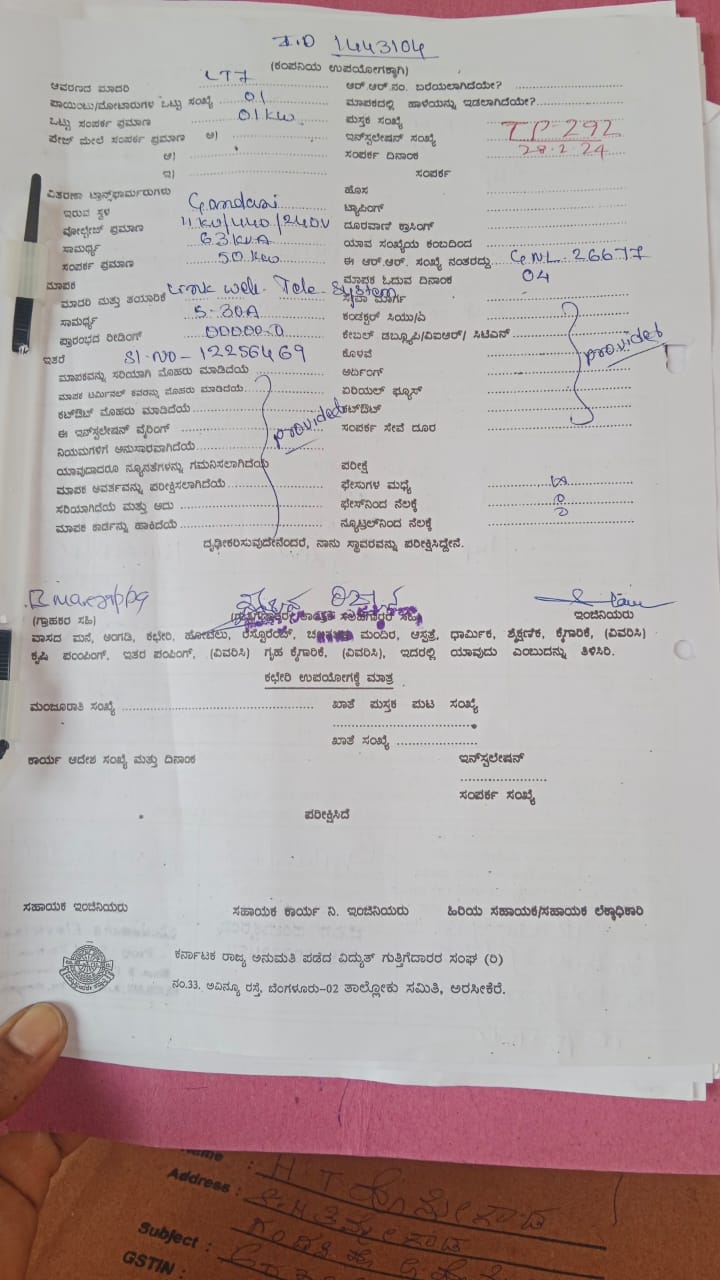 I.D 1443104
(ಕಂಪನಿಯ ಉಪಯೋಗಕ್ಕಾಗಿ)
ಆವರಣದ ಮಾದರಿ LT7 ಆರ್.ಆರ್.ನಂ. ಬರೆಯಲಾಗಿದೆಯೇ?
ಪಾಯಿಂಟು/ಮೋಟಾರುಗಳ ಒಟ್ಟು ಸಂಖ್ಯೆ 01 ಮಾಪಕದಲ್ಲಿ ಹಾಳೆಯನ್ನು ಇಡಲಾಗಿದೆಯೇ?
ಒಟ್ಟು ಸಂಪರ್ಕ ಪ್ರಮಾಣ 01 kw ಪುಸ್ತಕ ಸಂಖ್ಯೆ
ಪೇಜ್ ಮೇಲೆ ಸಂಪರ್ಕ ಪ್ರಮಾಣ ಅ) ಇನ್‌ಸ್ಟಲೇಷನ್ ಸಂಖ್ಯೆ TP-292
ಆ) ಸಂಪರ್ಕ ದಿನಾಂಕ 28.2.24
ಇ) ಸಂಪರ್ಕ
ವಿತರಣಾ ಟ್ರಾನ್ಸ್‌ಫಾರ್ಮರುಗಳು ಹೊಸ
ಇರುವ ಸ್ಥಳ Gandasi ಟ್ಯಾಪಿಂಗ್
ವೋಲ್ಟೇಜ್ ಪ್ರಮಾಣ 11 KV/440/240V ದೂರವಾಣಿ ಕ್ರಾಸಿಂಗ್
ಸಾಮರ್ಥ್ಯ 63 KVA ಯಾವ ಸಂಖ್ಯೆಯ ಕಂಬದಿಂದ
ಸಂಪರ್ಕ ಪ್ರಮಾಣ 50 kw ಈ ಆರ್.ಆರ್. ಸಂಖ್ಯೆ ನಂತರದ್ದು GNL: 26677
ಮಾಪಕ ಮಾಪಕ ಓದುವ ದಿನಾಂಕ 04
ಮಾದರಿ ಮತ್ತು ತಯಾರಿಕೆ Link well Tele System ಸೇವಾ ಮಾರ್ಗ
ಸಾಮರ್ಥ್ಯ 5-30A ಕಂಡಕ್ಟರ್ ಸಿಯು/ಎ
ಪ್ರಾರಂಭದ ರೀಡಿಂಗ್ 000000.0 ಕೇಬಲ್ ಡಬ್ಲ್ಯೂಪಿ/ವಿಐಆರ್/ ಸಿಟಿಎಸ್
ಇತರೆ Sl.No-12256469 ಕೊಳವೆ provided
ಮಾಪಕವನ್ನು ಸರಿಯಾಗಿ ಮೊಹರು ಮಾಡಿದೆಯೆ ಅರ್ದಿಂಗ್
ಮಾಪಕ ಟರ್ಮಿನಲ್ ಕವರನ್ನು ಮೊಹರು ಮಾಡಿದೆಯೆ ಏರಿಯಲ್ ಫ್ಯೂಸ್
ಕಟ್‌ಔಟ್ ಮೊಹರು ಮಾಡಿದೆಯೆ ಕಟ್‌ಔಟ್
ಈ ಇನ್‌ಸ್ಟಲೇಷನ್ ವೈರಿಂಗ್ provided ಸಂಪರ್ಕ ಸೇವೆ ದೂರ
ನಿಯಮಗಳಿಗೆ ಅನುಸಾರವಾಗಿದೆಯೆ
ಯಾವುದಾದರೂ ನ್ಯೂನತೆಗಳನ್ನು ಗಮನಿಸಲಾಗಿದೆಯೆ ಪರೀಕ್ಷೆ
ಮಾಪಕ ಅವರ್ತವನ್ನು ಪರೀಕ್ಷಿಸಲಾಗಿದೆಯೆ ಫೇಸುಗಳ ಮಧ್ಯೆ
ಸರಿಯಾಗಿದೆಯೆ ಮತ್ತು ಅದು ಫೇಸ್‌ನಿಂದ ನೆಲಕ್ಕೆ
ಮಾಪಕ ಕಾರ್ಡನ್ನು ಹಾಕಿದೆಯೆ ನ್ಯೂಟ್ರಲ್‌ನಿಂದ ನೆಲಕ್ಕೆ
ದೃಢೀಕರಿಸುವುದೇನೆಂದರೆ, ನಾನು ಸ್ಥಾವರವನ್ನು ಪರೀಕ್ಷಿಸಿದ್ದೇನೆ.
(ಗ್ರಾಹಕರ ಸಹಿ) ಇಂಜಿನಿಯರು
ವಾಸದ ಮನೆ, ಅಂಗಡಿ, ಕಛೇರಿ, ಹೋಟೆಲು, ರೆಸ್ಟೊರೆಂಟ್, ಮಂದಿರ, ಆಸ್ಪತ್ರೆ, ಧಾರ್ಮಿಕ, ಶೈಕ್ಷಣಿಕ, ಕೈಗಾರಿಕೆ, (ವಿವರಿಸಿ)
ಕೃಷಿ ಪಂಪಿಂಗ್, ಇತರ ಪಂಪಿಂಗ್, (ವಿವರಿಸಿ) ಗೃಹ ಕೈಗಾರಿಕೆ, (ವಿವರಿಸಿ), ಇದರಲ್ಲಿ ಯಾವುದು ಎಂಬುದನ್ನು ತಿಳಿಸಿರಿ.
ಕಛೇರಿ ಉಪಯೋಗಕ್ಕೆ ಮಾತ್ರ
ಮಂಜೂರಾತಿ ಸಂಖ್ಯೆ ಖಾತೆ ಪುಸ್ತಕ ಪುಟ ಸಂಖ್ಯೆ
ಖಾತೆ ಸಂಖ್ಯೆ
ಕಾರ್ಯ ಆದೇಶ ಸಂಖ್ಯೆ ಮತ್ತು ದಿನಾಂಕ ಇನ್‌ಸ್ಟಲೇಷನ್
ಸಂಪರ್ಕ ಸಂಖ್ಯೆ
ಪರೀಕ್ಷಿಸಿದೆ
ಸಹಾಯಕ ಇಂಜಿನಿಯರು ಸಹಾಯಕ ಕಾರ್ಯ ನಿ. ಇಂಜಿನಿಯರು ಹಿರಿಯ ಸಹಾಯಕ/ಸಹಾಯಕ ಲೆಕ್ಕಾಧಿಕಾರಿ
ಕರ್ನಾಟಕ ರಾಜ್ಯ ಅನುಮತಿ ಪಡೆದ ವಿದ್ಯುತ್ ಗುತ್ತಿಗೆದಾರರ ಸಂಘ (ರಿ)
ನಂ.33. ಅವಿನ್ಯೂ ರಸ್ತೆ, ಬೆಂಗಳೂರು-02 ತಾಲ್ಲೋಕು ಸಮಿತಿ, ಅರಸೀಕೆರೆ.
Address :
Subject :
GSTIN :